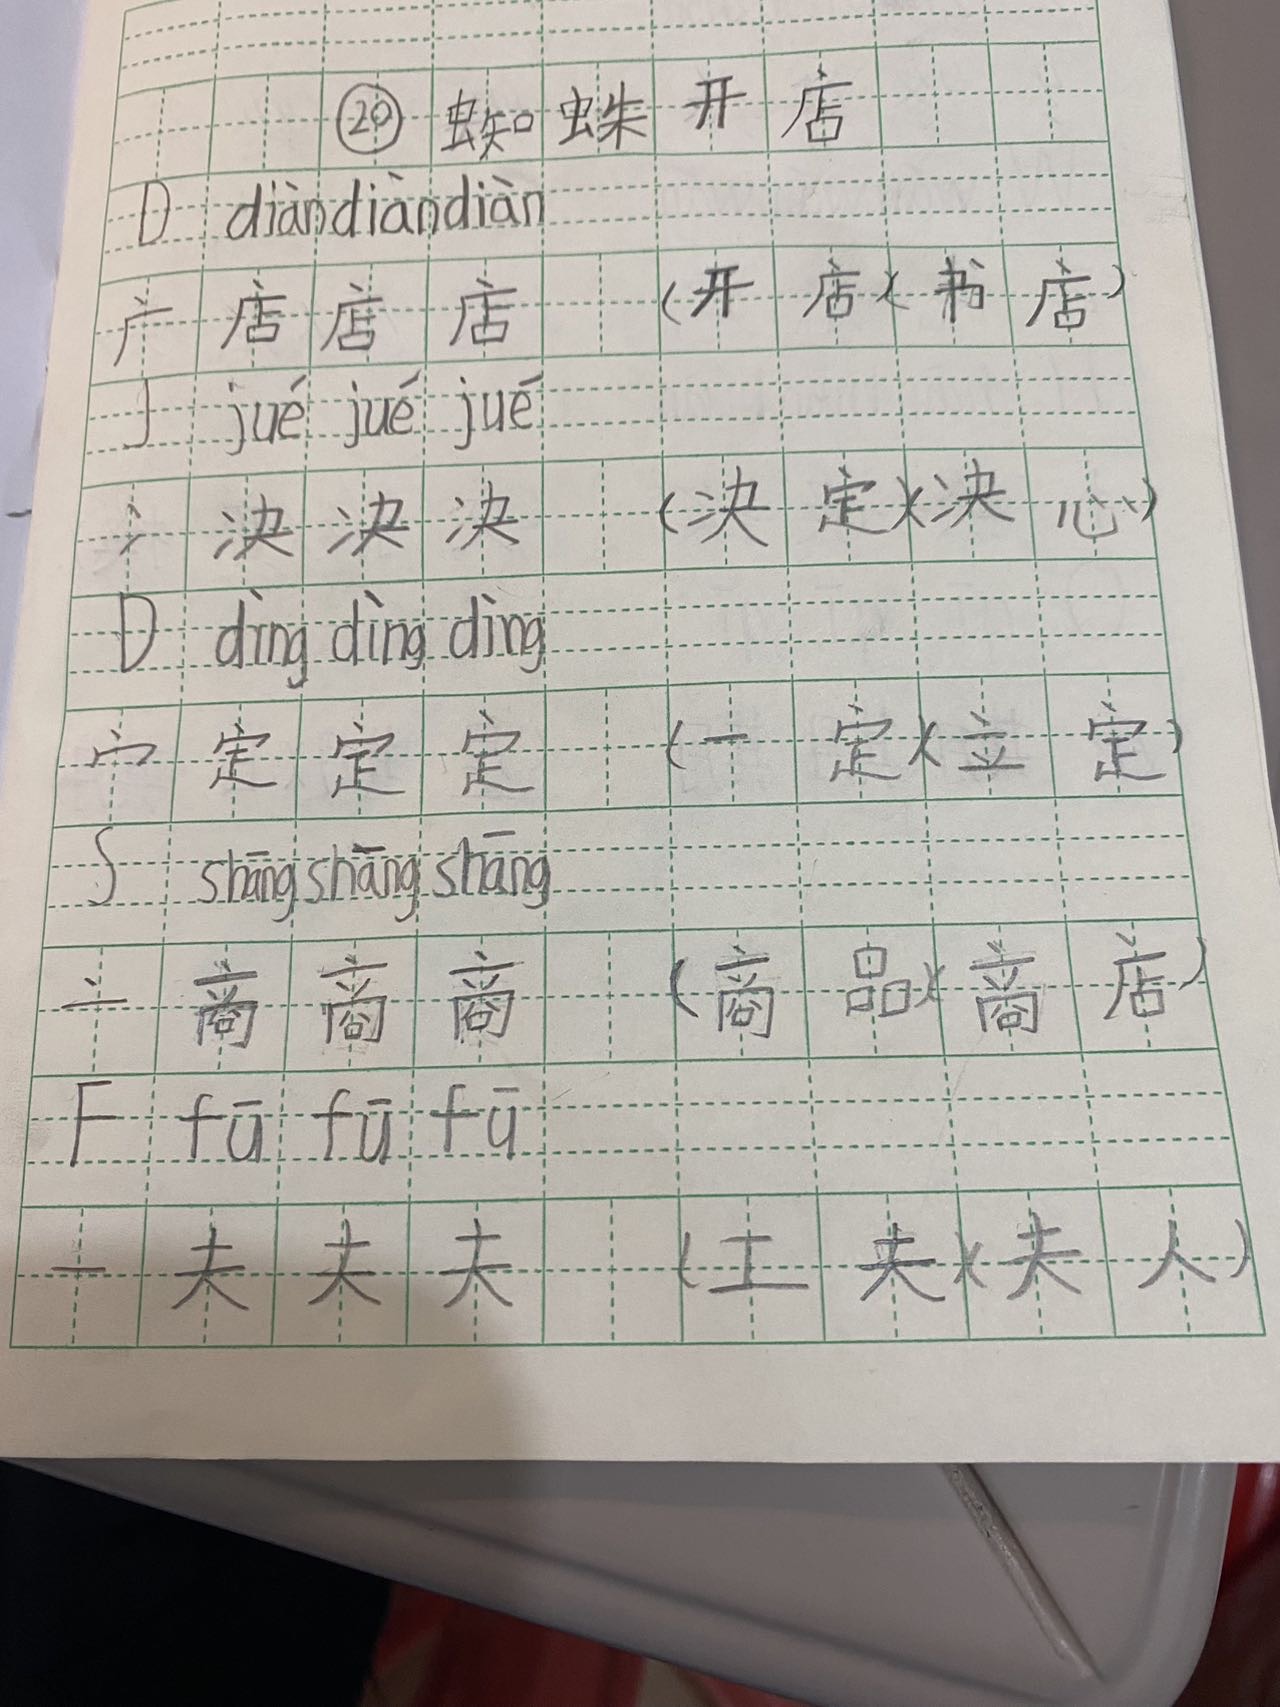 ⑳ 蜘蛛开店
D diàn diàn diàn
广 店 店 店 (开店)(书店)
J jué jué jué
冫 决 决 决 (决定)(决心)
D dìng dìng dìng
宀 定 定 定 (一定)(立定)
S shāng shāng shāng
亠 商 商 商 (商品)(商店)
F fū fū fū
一 夫 夫 夫 (工夫)(夫人)